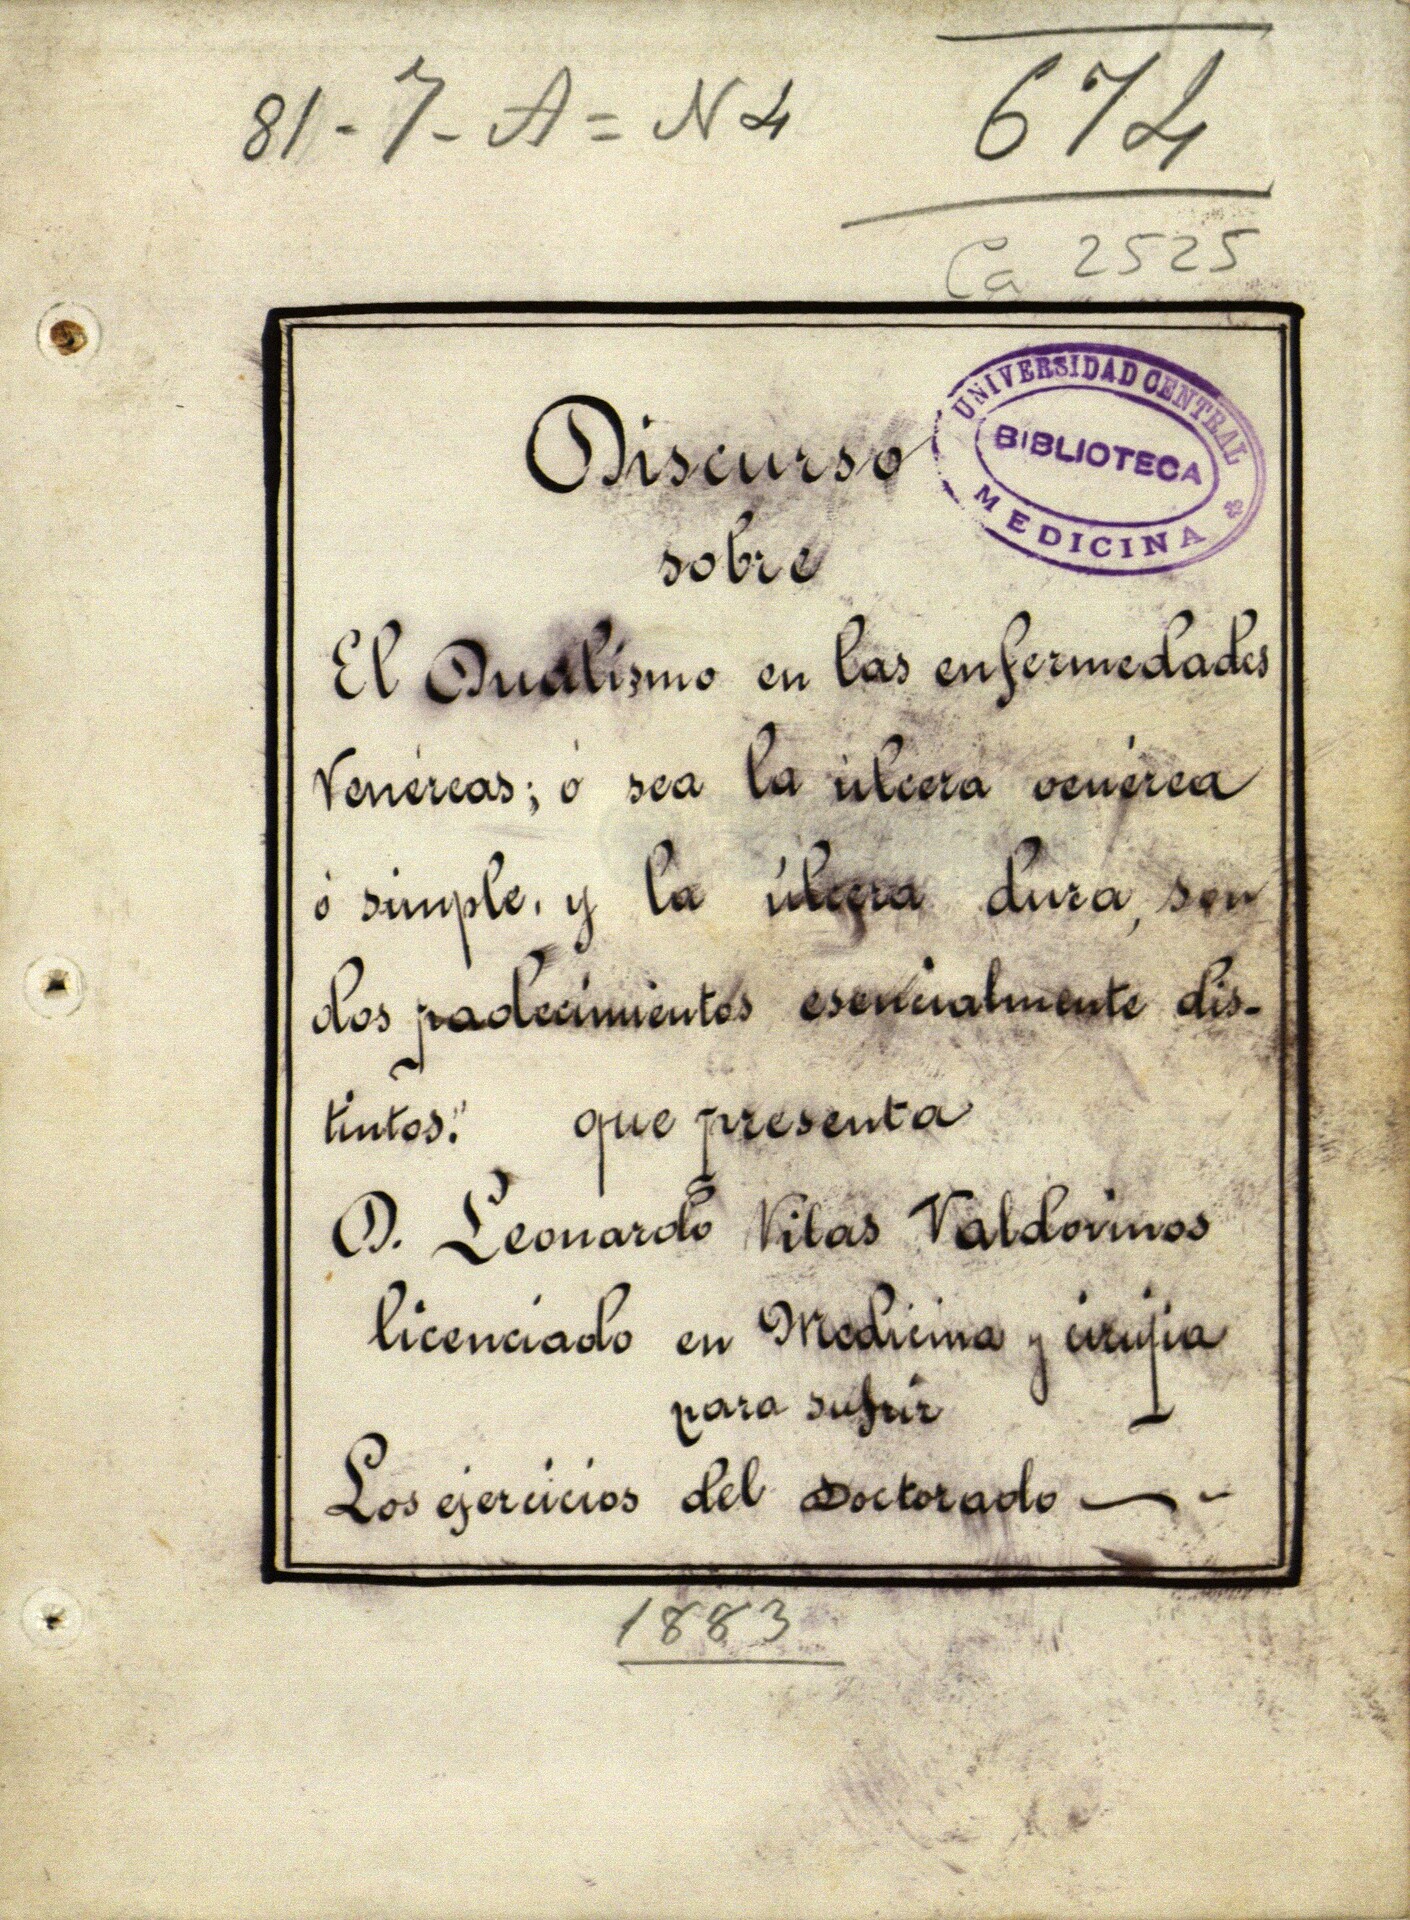 81-7-A=N4
674
Ca 2525
UNIVERSIDAD CENTRAL
BIBLIOTECA
MEDICINA
Discurso
sobre
El Dualismo en las enfermedades
Venéreas; ó sea la úlcera venérea
ó simple, y la úlcera dura, son
dos padecimientos esencialmente dis-
tintos." que presenta
D. Leonardo Vilas Valdovinos
licenciado en Medicina y cirujia
para sufrir
Los ejercicios del Doctorado
1883